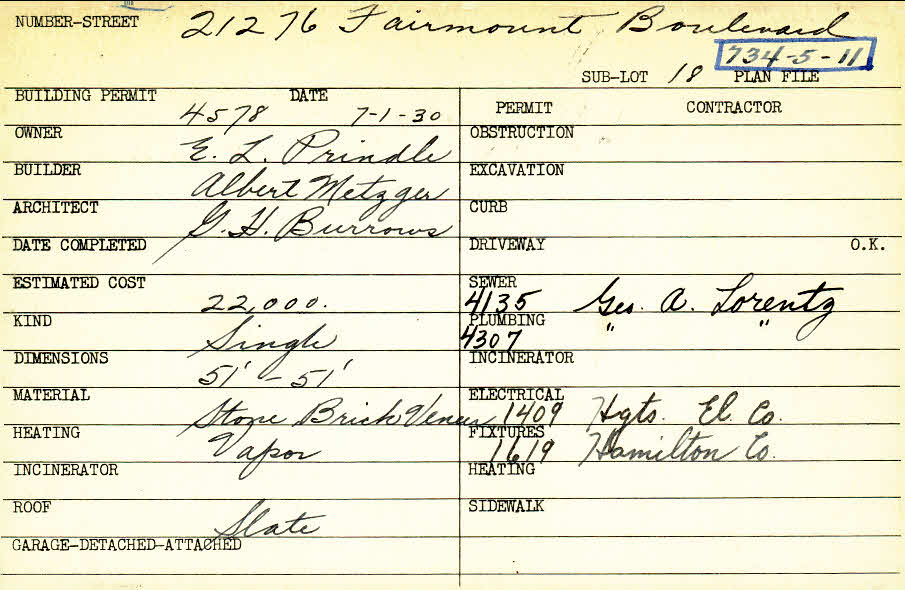 NUMBER-STREET 21276 Fairmount Boulevard
734-5-11
SUB-LOT 18 PLAN FILE
BUILDING PERMIT 4578 DATE 7-1-30
PERMIT CONTRACTOR
OWNER E. L. Prindle
OBSTRUCTION
BUILDER Albert Metzger
EXCAVATION
ARCHITECT G. H. Burrows
CURB
DATE COMPLETED
DRIVEWAY O.K.
ESTIMATED COST 22,000.
SEWER 4135 Geo. A. Lorentz
KIND Single
PLUMBING 4307 " "
DIMENSIONS 51' - 51'
INCINERATOR
MATERIAL Stone Brick Veneer
ELECTRICAL 1409 Hgts. El. Co.
HEATING Vapor
FIXTURES 1619 Hamilton Co.
INCINERATOR
HEATING
ROOF Slate
SIDEWALK
GARAGE-DETACHED-ATTACHED